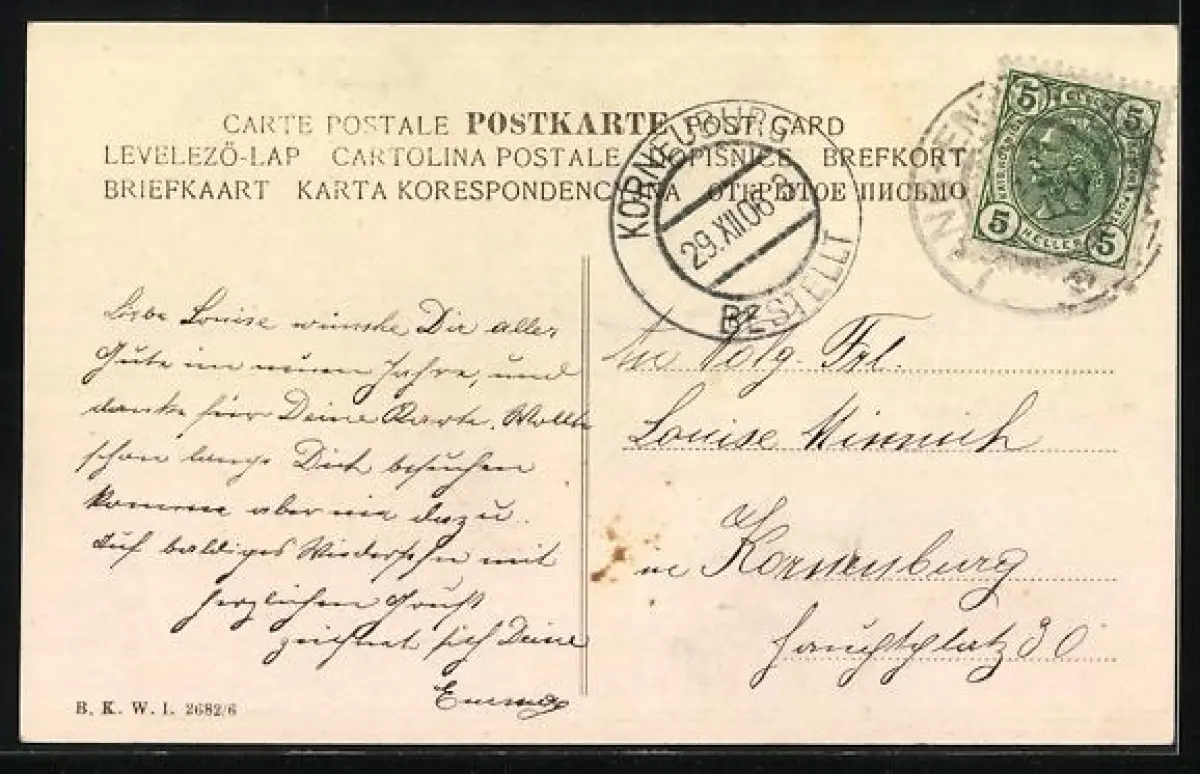 CARTE POSTALE POSTKARTE POST CARD
LEVELEZŐ-LAP CARTOLINA POSTALE DOPISNICE BREFKORT
BRIEFKAART KARTA KORESPONDENCYJNA ОТКРЫТОЕ ПИСЬМО
KORNEUBURG
29.XII.06
BESTELLT
5 5
5 HELLER 5
Liebe Louise wünsche Dir alles
Gute im neuen Jahre, und
danke für Deine Karte. Wollte
schon lange Dich besuchen
komme aber nie dazu.
Auf baldiges Wiedersehn mit
herzlichen Grueß
zeichnet sich Deine
Emma
An Frl.
Louise Minnich
in Korneuburg
Hauptplatz 30
B. K. W. I. 2682/6